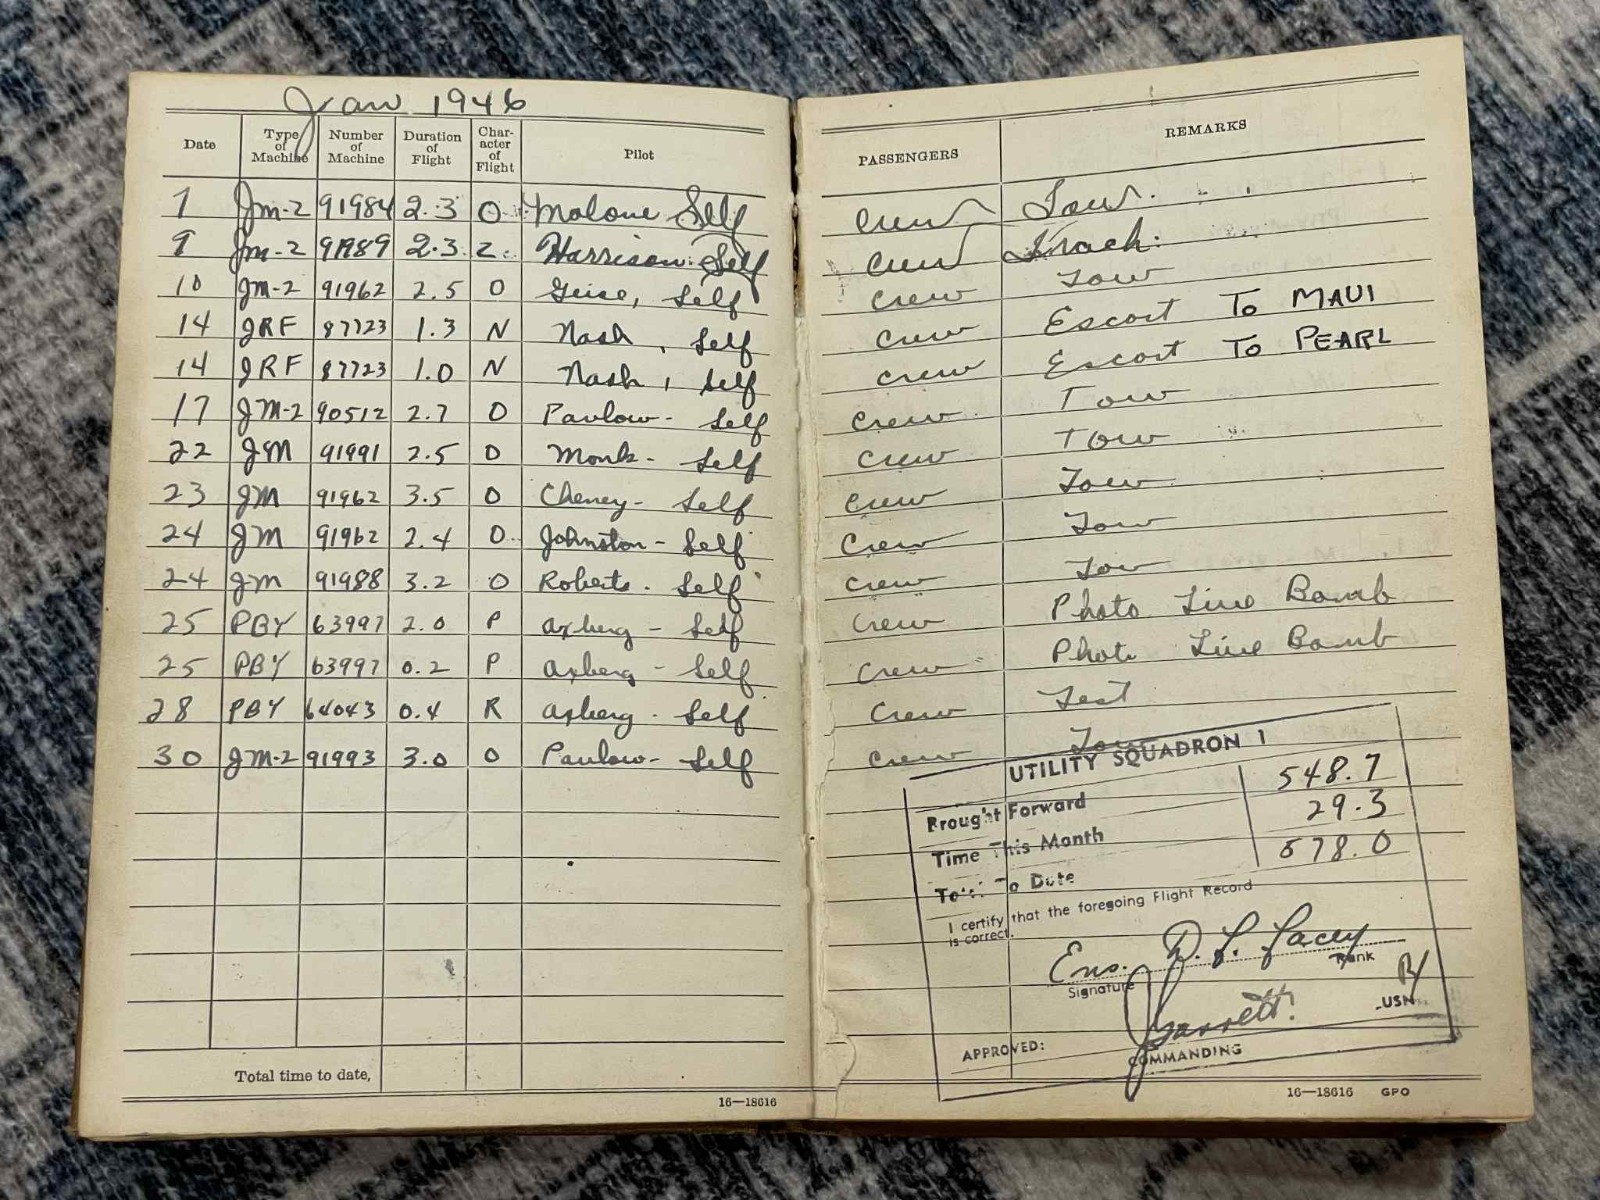 Jan 1946
Date Type of Machine Number of Machine Duration of Flight Character of Flight Pilot PASSENGERS REMARKS
7 JM-2 91984 2.3 O Malone Self Crew Tow.
9 JM-2 91989 2.3 Z. Harrison. Self Crew Track.
10 JM-2 91962 2.5 O Geise, Self Crew Tow
14 JRF 87723 1.3 N Nash, Self Crew Escort To MAUI
14 JRF 87723 1.0 N Nash, Self Crew Escort To PEARL
17 JM-2 90512 2.7 O Pavlow- Self Crew Tow
22 JM 91991 2.5 O Monk- Self Crew Tow
23 JM 91962 3.5 O Cheney- Self Crew Tow
24 JM 91962 2.4 O Johnston- Self Crew Tow
24 JM 91988 3.2 O Roberts. Self Crew Tow
25 PBY 63997 2.0 P Axberg - Self Crew Photo Live Bomb
25 PBY 63997 0.2 P Axberg - Self Crew Photo Live Bomb
28 PBY 64043 0.4 R Axberg - Self Crew Test
30 JM-2 91993 3.0 O Pavlow- Self Crew Tow
UTILITY SQUADRON 1
Brought Forward 548.7
Time This Month 29.3
Total To Date 578.0
I certify that the foregoing Flight Record
is correct.
Ens. D. L. Lacey
Signature Rank
Garrett.
USN
APPROVED:
COMMANDING
Total time to date,
16—18616
16—18616 GPO